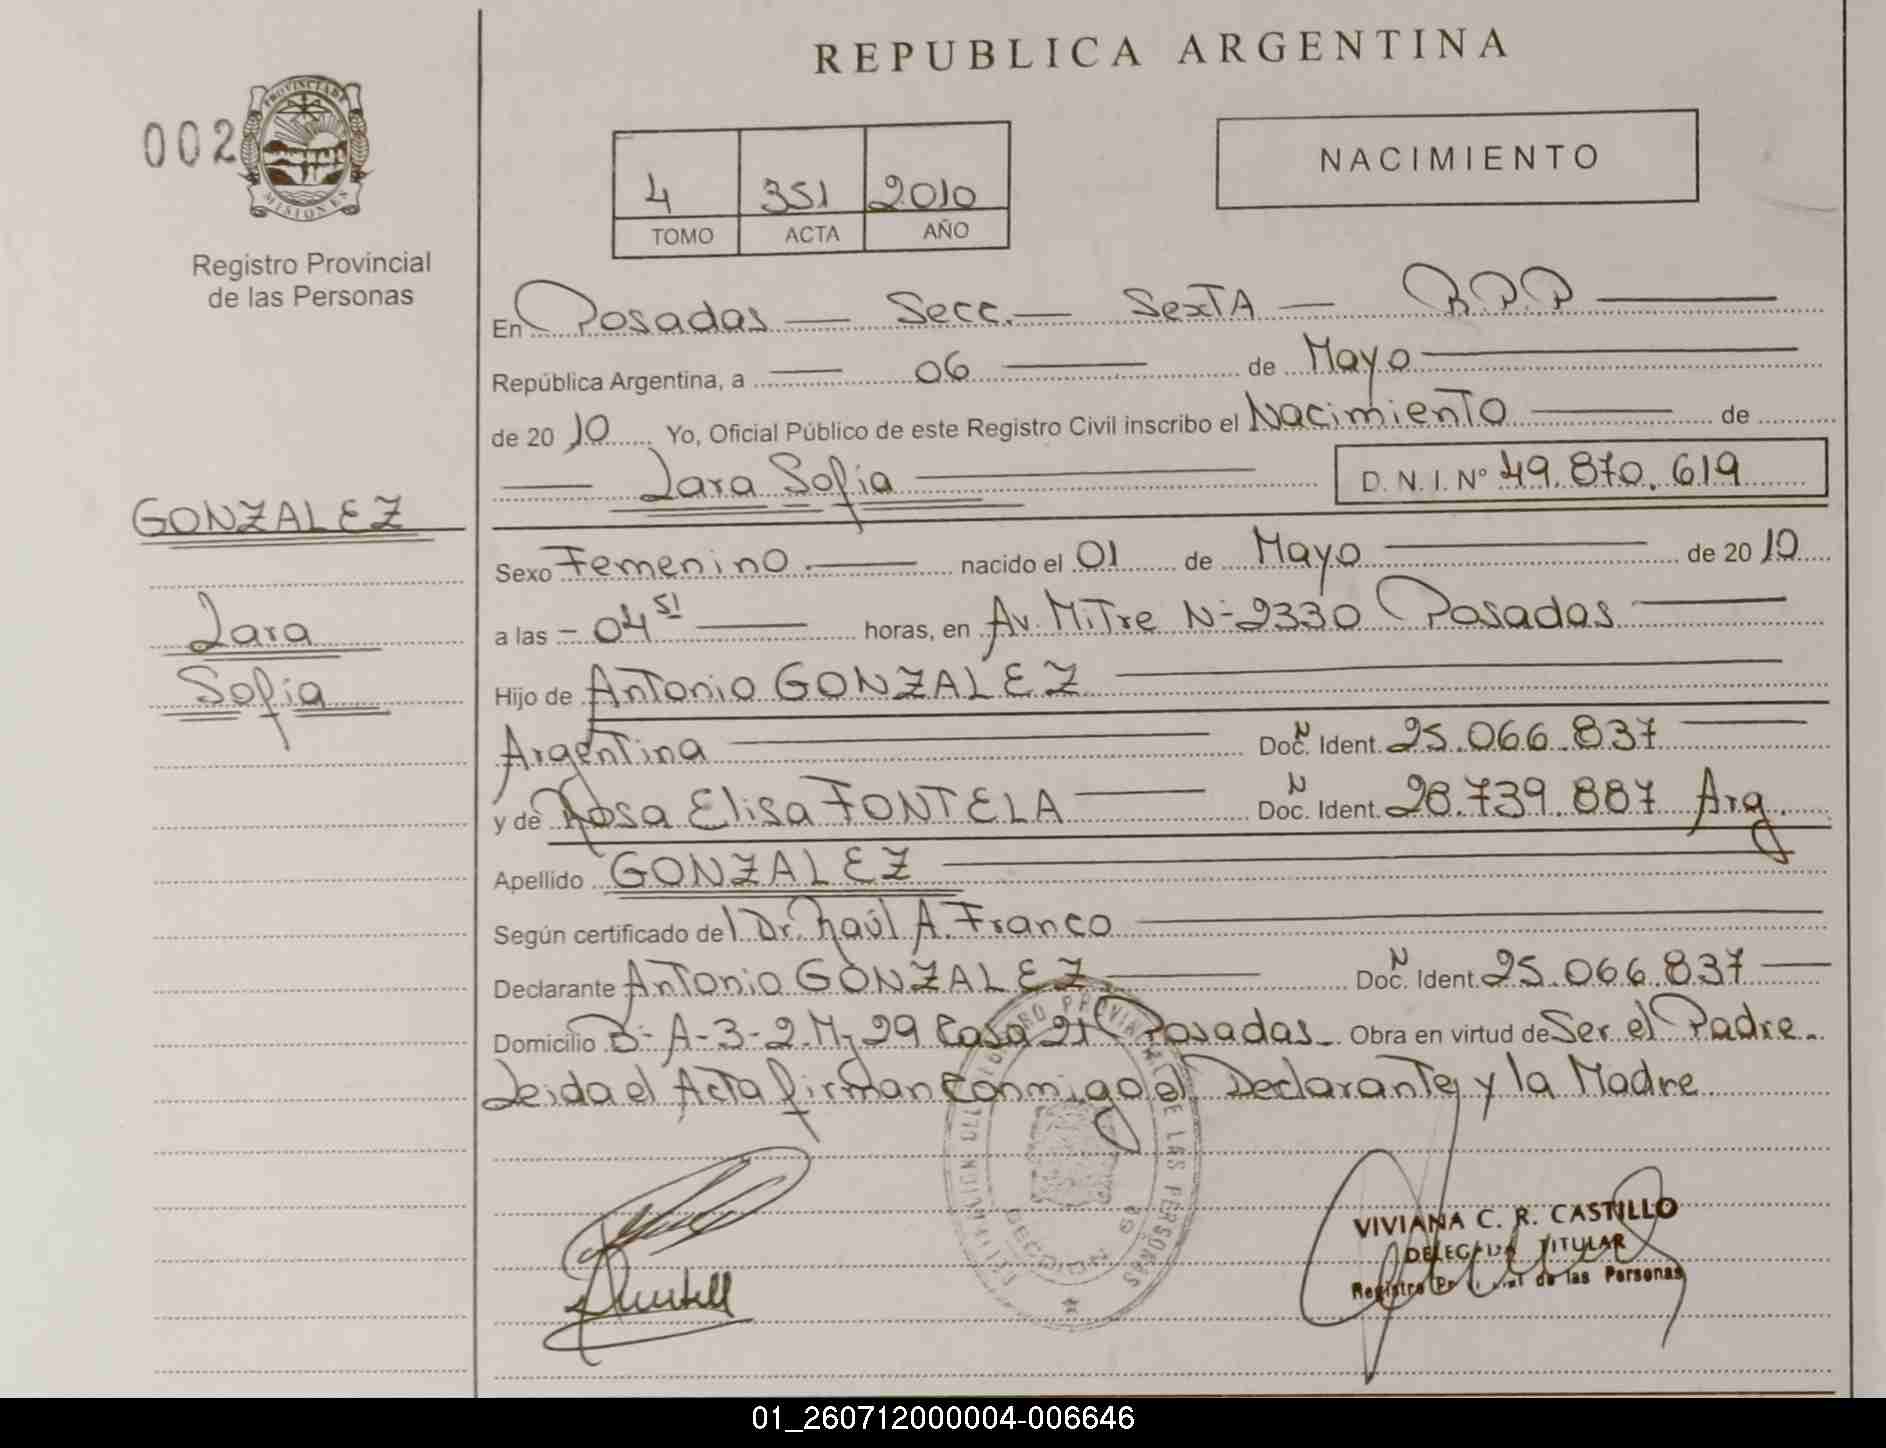 REPUBLICA ARGENTINA
002
PROVINCIA DE
MISIONES
Registro Provincial
de las Personas
4 351 2010
TOMO ACTA AÑO
NACIMIENTO
En Posadas — Secc. — SexTA — R.P.P —
República Argentina, a — 06 — de Mayo —
de 20 10 Yo, Oficial Público de este Registro Civil inscribo el Nacimiento — de
— Lara Sofia — D. N. I. Nº 49.870.619
GONZALEZ
Lara
Sofia
Sexo Femenino — nacido el 01 de Mayo — de 20 10
a las - 04 51 — horas, en Av. Mitre N- 2330 Posadas —
Hijo de Antonio GONZALEZ —
Argentina — Doc. N Ident. 25.066.837 —
y de Rosa Elisa FONTELA — Doc. N Ident. 28.739.887 Arg.
Apellido GONZALEZ —
Según certificado del Dr. Raúl A. Franco —
Declarante Antonio GONZALEZ — Doc. N Ident. 25.066.837 —
Domicilio B- A-3-2 Mz 29 Casa 21 Posadas - Obra en virtud de Ser el Padre.
Leida el Acta firman conmigo el Declarante y la Madre
VIVIANA C. R. CASTILLO
DELEGADA TITULAR
Registro Provincial de las Personas
01_260712000004-006646